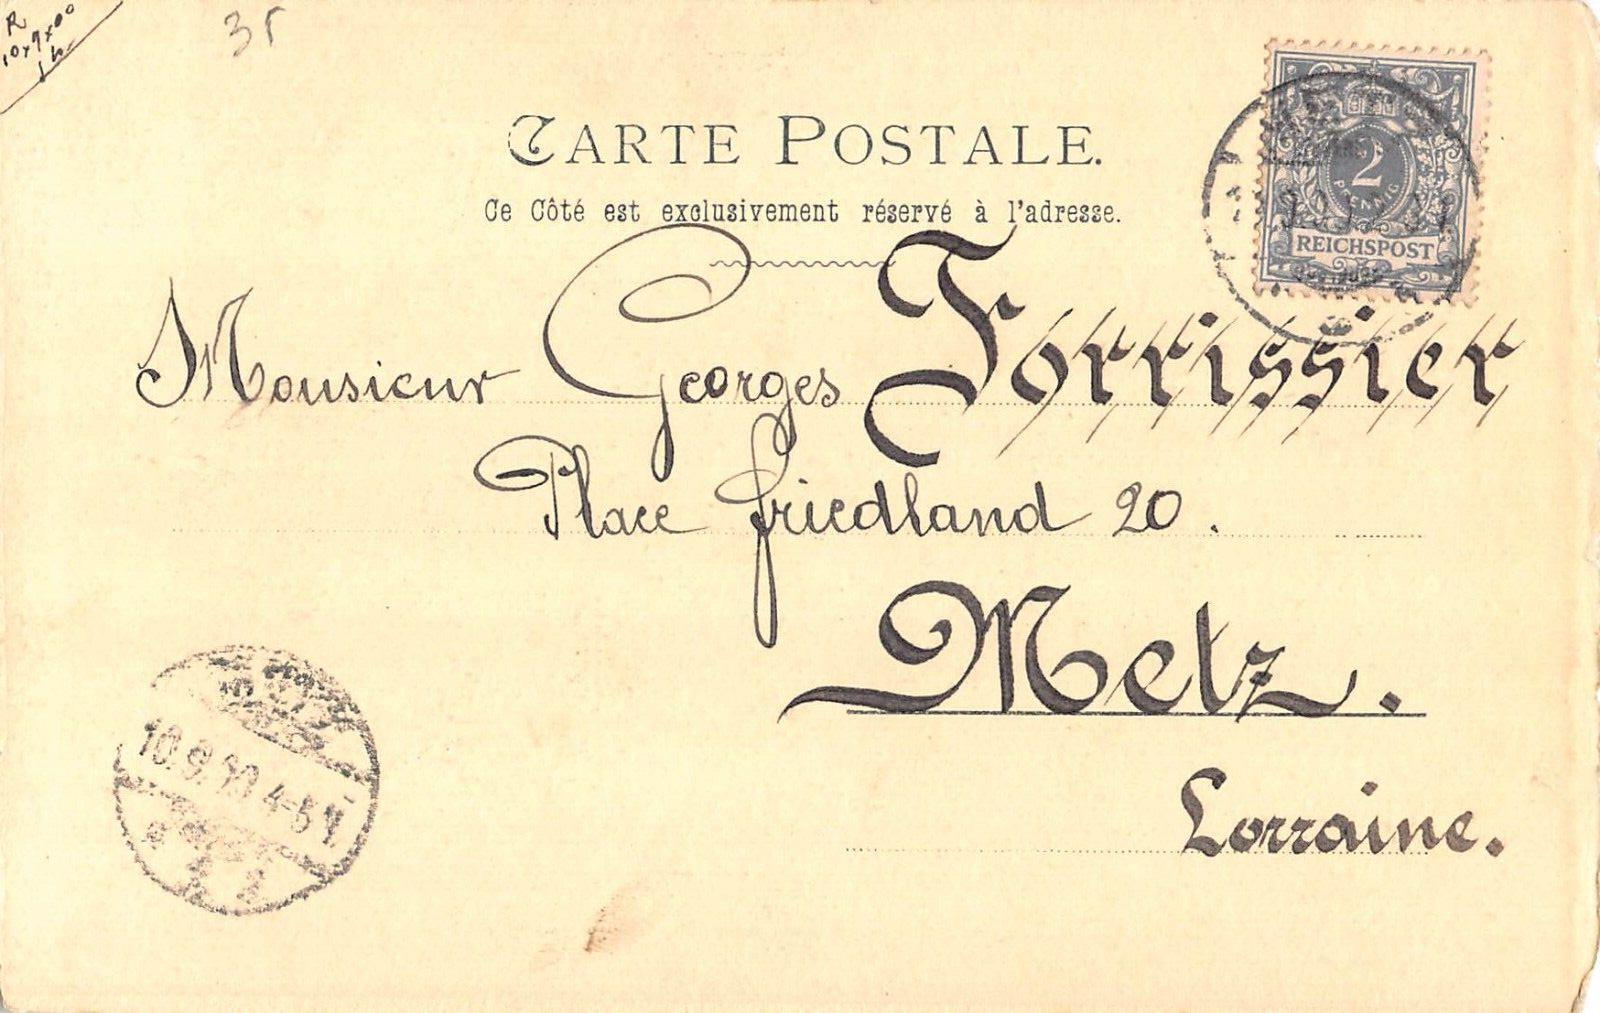 R
10x9x00
35
CARTE POSTALE.
Ce Côté est exclusivement réservé à l'adresse.
2
PFENNIG
REICHSPOST
Monsieur Georges Forrissier
Place Friedland 20.
Metz.
Lorraine.
10.9.